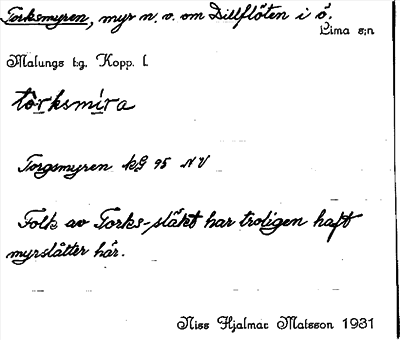 Torksmyren, myr n. v. om Dillflöten i ö.
Lima s:n
Malungs t:g. Kopp. l.
tôrksmira
Torgsmyren kG 95 NV
Folk av Torks-släkt har troligen haft
myrslåtter här.
Niss Hjalmar Matsson 1931